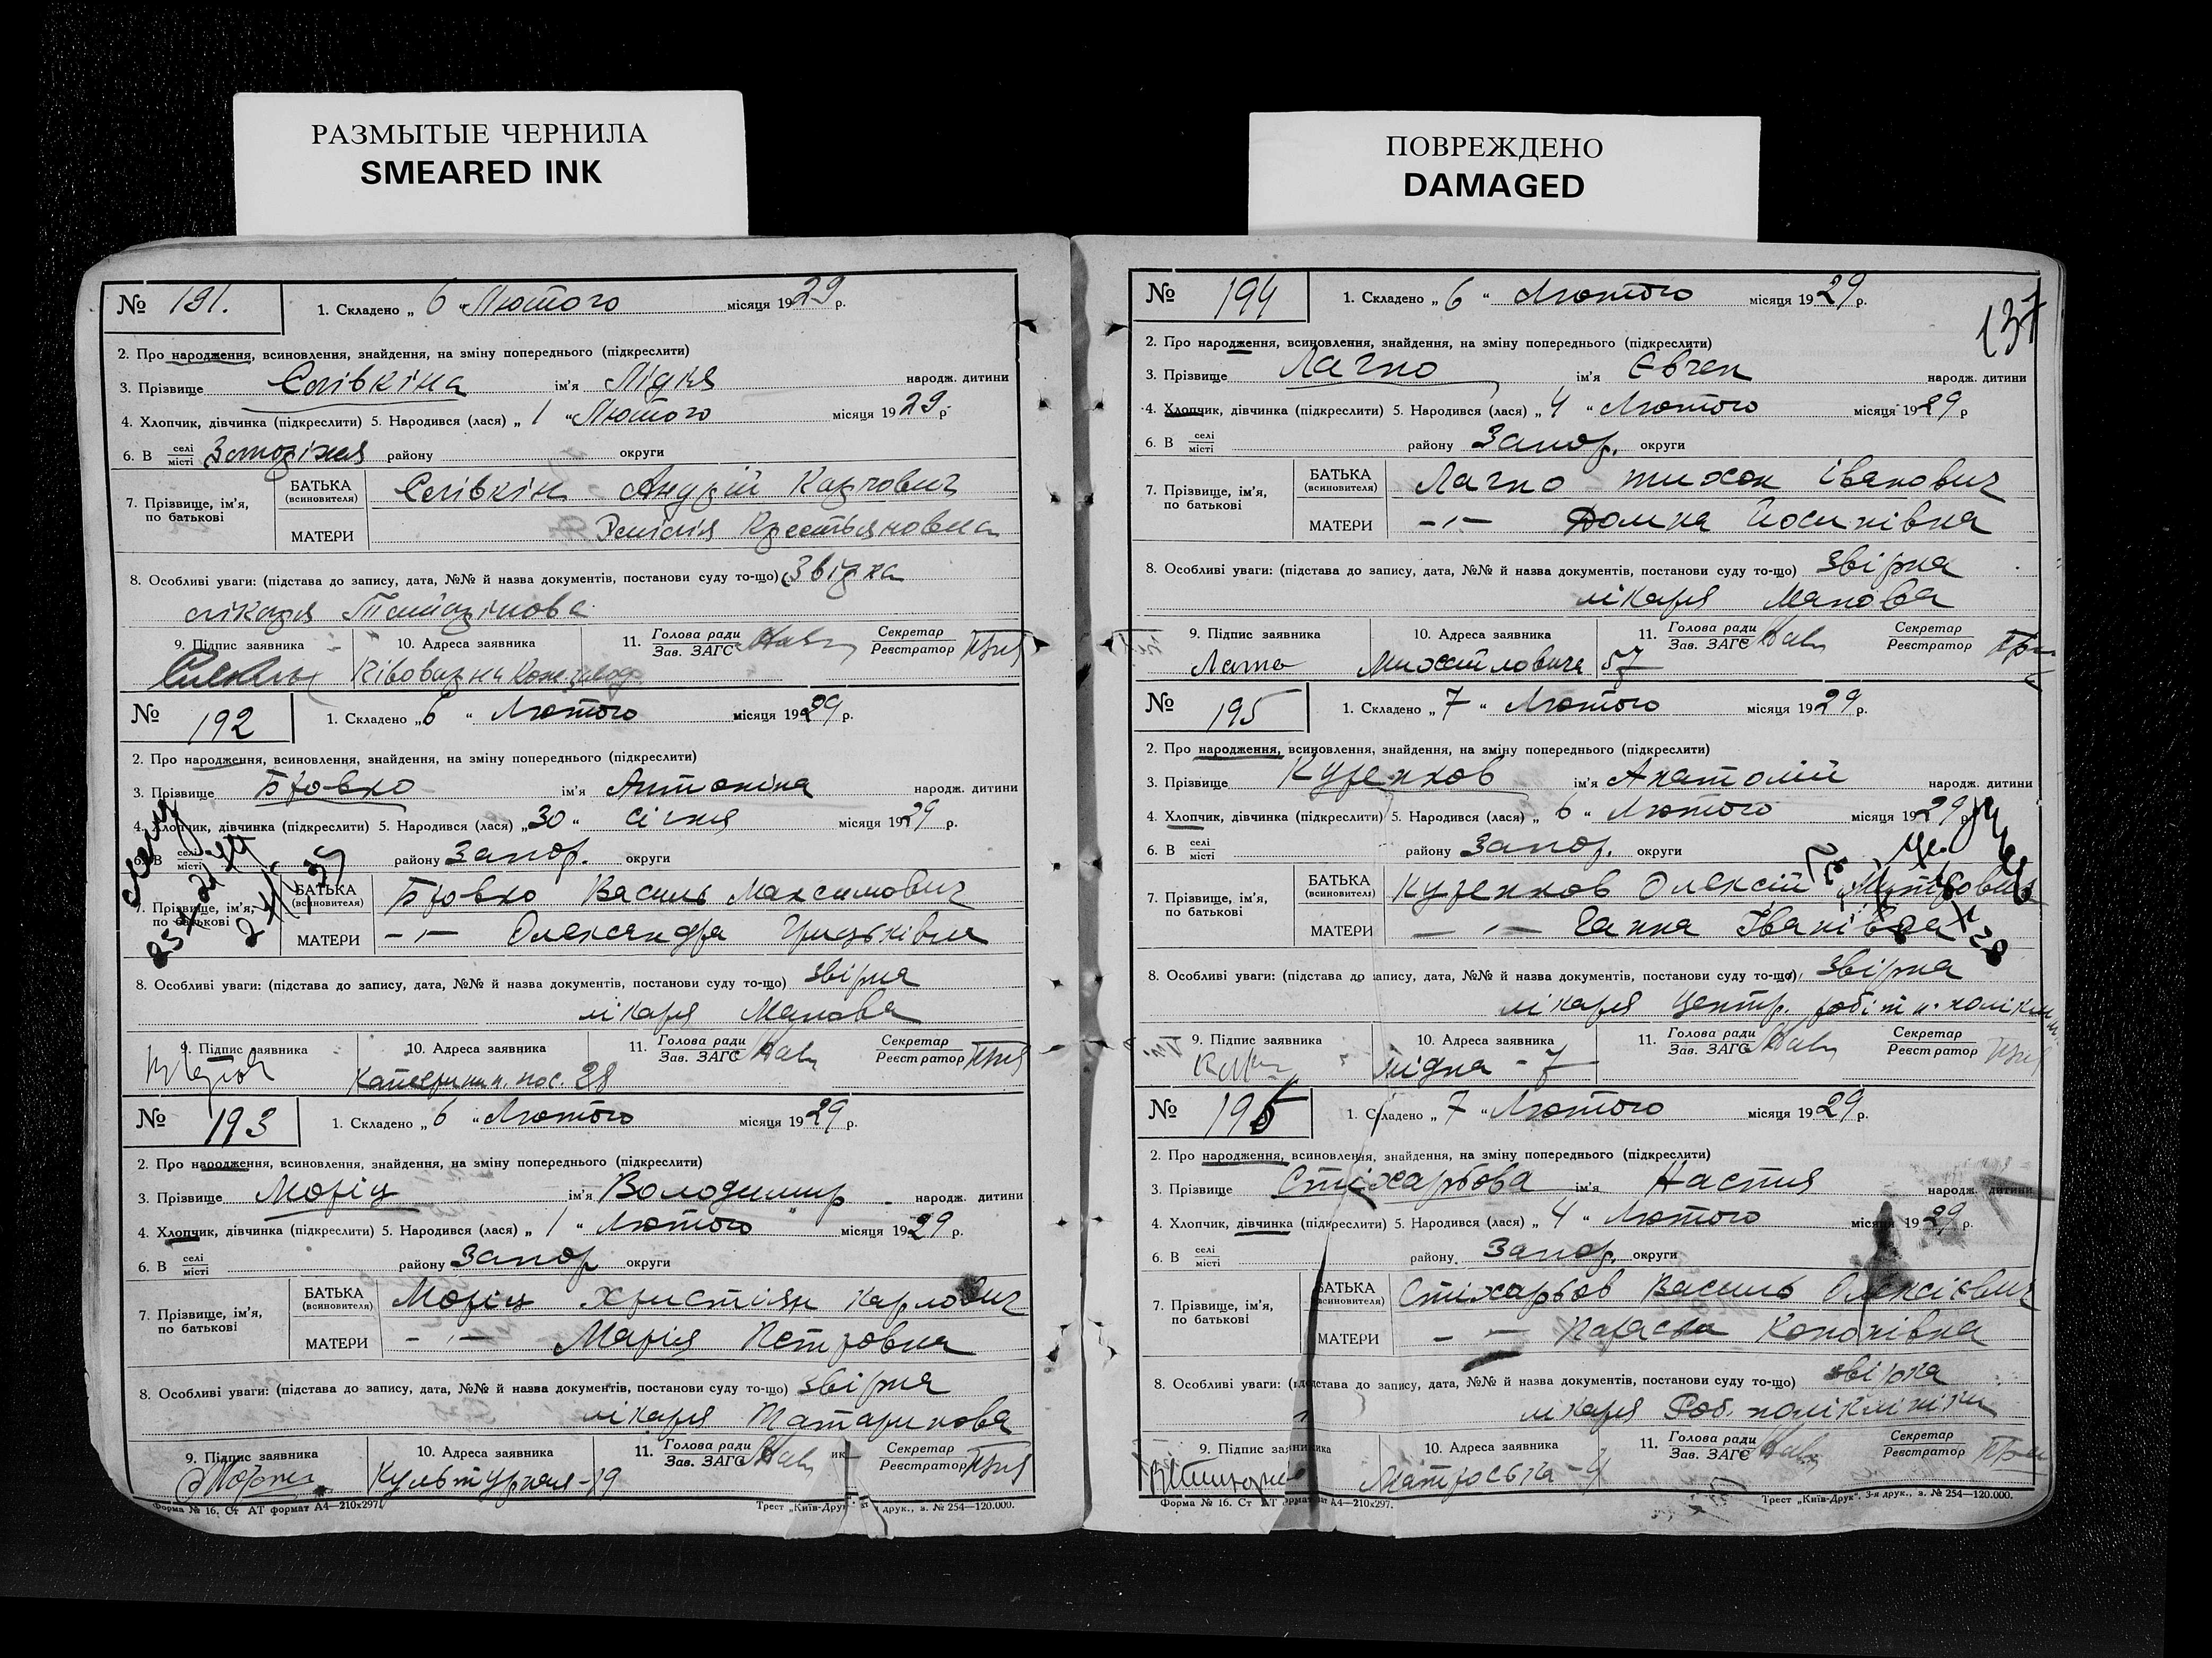 РАЗМЫТЫЕ ЧЕРНИЛА
SMEARED INK
ПОВРЕЖДЕНО
DAMAGED
№ 191.
1. Складено „ 6 “ Лютого місяця 1929 р.
2. Про народження, всиновлення, знайдення, на зміну попереднього (підкреслити)
3. Прізвище Слівкіна ім'я Лідія народж. дитини
4. Хлопчик, дівчинка (підкреслити) 5. Народився (лася) „ 1 “ Лютого місяця 1929 р
6. В селі місті району округи
7. Прізвище, ім'я, по батькові
БАТЬКА (всиновителя) Слівкін Андрій Карлович
МАТЕРИ
8. Особливі уваги: (підстава до запису, дата, №№ й назва документів, постанови суду то-що) Звірка
лікаря
9. Підпис заявника 10. Адреса заявника 11. Голова ради Зав. ЗАГС Секретар Реєстратор
№ 192
1. Складено „ 6 “ Лютого місяця 1929 р.
2. Про народження, всиновлення, знайдення, на зміну попереднього (підкреслити)
3. Прізвище Бровко ім'я Антоніна народж. дитини
4. Хлопчик, дівчинка (підкреслити) 5. Народився (лася) „ 30 “ січня місяця 1929 р.
6. В селі місті району Запор. округи
7. Прізвище, ім'я, по батькові
БАТЬКА (всиновителя) Бровко Василь Максимович
МАТЕРИ -„- Олександра Грицьківна
8. Особливі уваги: (підстава до запису, дата, №№ й назва документів, постанови суду то-що) звірка
лікаря Манова
9. Підпис заявника 10. Адреса заявника 11. Голова ради Зав. ЗАГС Секретар Реєстратор
пос. 28
№ 193
1. Складено „ 6 “ Лютого місяця 1929 р.
2. Про народження, всиновлення, знайдення, на зміну попереднього (підкреслити)
3. Прізвище Моріц ім'я Володимир народж. дитини
4. Хлопчик, дівчинка (підкреслити) 5. Народився (лася) „ 1 “ Лютого місяця 1929 р.
6. В селі місті району Запор округи
7. Прізвище, ім'я, по батькові
БАТЬКА (всиновителя) Моріц Християн Карлович
МАТЕРИ -„- Марія Петровна
8. Особливі уваги: (підстава до запису, дата, №№ й назва документів, постанови суду то-що) звірка
лікаря Татаринова
9. Підпис заявника 10. Адреса заявника 11. Голова ради Зав. ЗАГС Секретар Реєстратор
Культурная-19
Форма № 16. Ст АТ формат А4—210х297. Трест „Київ-Друк" друк., з. № 254—120.000.
137
№ 194
1. Складено „ 6 “ Лютого місяця 1929 р.
2. Про народження, всиновлення, знайдення, на зміну попереднього (підкреслити)
3. Прізвище Лагно ім'я Євген народж. дитини
4. Хлопчик, дівчинка (підкреслити) 5. Народився (лася) „ 4 “ Лютого місяця 1929 р
6. В селі місті району Запор. округи
7. Прізвище, ім'я, по батькові
БАТЬКА (всиновителя) Лагно Тихон Іванович
МАТЕРИ -„- Домна Йосипівна
8. Особливі уваги: (підстава до запису, дата, №№ й назва документів, постанови суду то-що) звірка
лікаря Манова
9. Підпис заявника 10. Адреса заявника 11. Голова ради Зав. ЗАГС Секретар Реєстратор
Лагно Михайловича 57
№ 195
1. Складено „ 7 “ Лютого місяця 1929 р.
2. Про народження, всиновлення, знайдення, на зміну попереднього (підкреслити)
3. Прізвище Кузенков ім'я Анатолій народж. дитини
4. Хлопчик, дівчинка (підкреслити) 5. Народився (лася) „ 6 “ Лютого місяця 1929 р.
6. В селі місті району Запор. округи
7. Прізвище, ім'я, по батькові
БАТЬКА (всиновителя) Кузенков Олексій
МАТЕРИ -„- Ганна Іванівна
8. Особливі уваги: (підстава до запису, дата, №№ й назва документів, постанови суду то-що) звірка
лікаря Центр. робітн. поліклін.
9. Підпис заявника 10. Адреса заявника 11. Голова ради Зав. ЗАГС Секретар Реєстратор
№ 196
1. Складено „ 7 “ Лютого місяця 1929 р.
2. Про народження, всиновлення, знайдення, на зміну попереднього (підкреслити)
3. Прізвище Стіхарьова ім'я Настия народж. дитини
4. Хлопчик, дівчинка (підкреслити) 5. Народився (лася) „ 4 “ Лютого місяця 1929 р.
6. В селі місті району Запор. округи
7. Прізвище, ім'я, по батькові
БАТЬКА (всиновителя) Стіхарьов Василь Олексієвич
МАТЕРИ - - Параска Кононівна
8. Особливі уваги: (підстава до запису, дата, №№ й назва документів, постанови суду то-що) звірка
лікаря Роб. поліклініки
9. Підпис заявника 10. Адреса заявника 11. Голова ради Зав. ЗАГС Секретар Реєстратор
Матроська-4
Форма № 16. Ст АТ формат А4—210х297. Трест „Київ-Друк". 3-я друк., з. № 254—120.000.